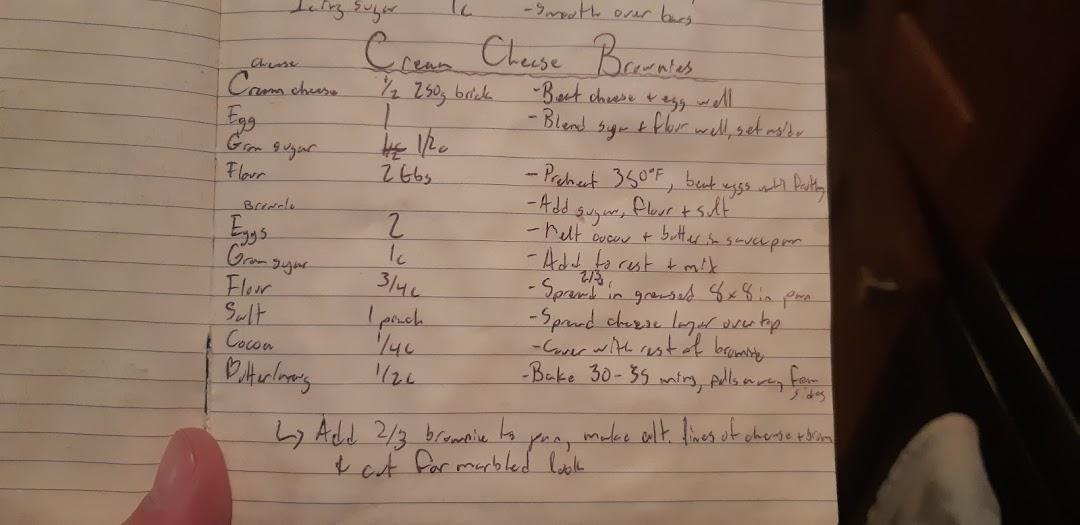 Icing sugar 1c - Smooth over bars
Cream Cheese Brownies
Cheese
Cream cheese 1/2 250g brick - Beat cheese + egg well
Egg 1 - Blend sugar + flour well, set aside
Gran sugar 1/2c
Flour 2 tbs - Preheat 350°F, beat eggs until frothy
Brownie - Add sugar, flour + salt
Eggs 2 - Melt cocoa + butter in saucepan
Gran sugar 1c - Add to rest + mix
Flour 3/4c - Spread 2/3 in greased 8x8 in pan
Salt 1 pinch - Spread cheese layer over top
Cocoa 1/4c - Cover with rest of brownie
1/2c - Bake 30-35 mins, pulls away from sides
↳ Add 2/3 brownie to pan, make alt. lines of cheese + brown
+ cut for marbled look